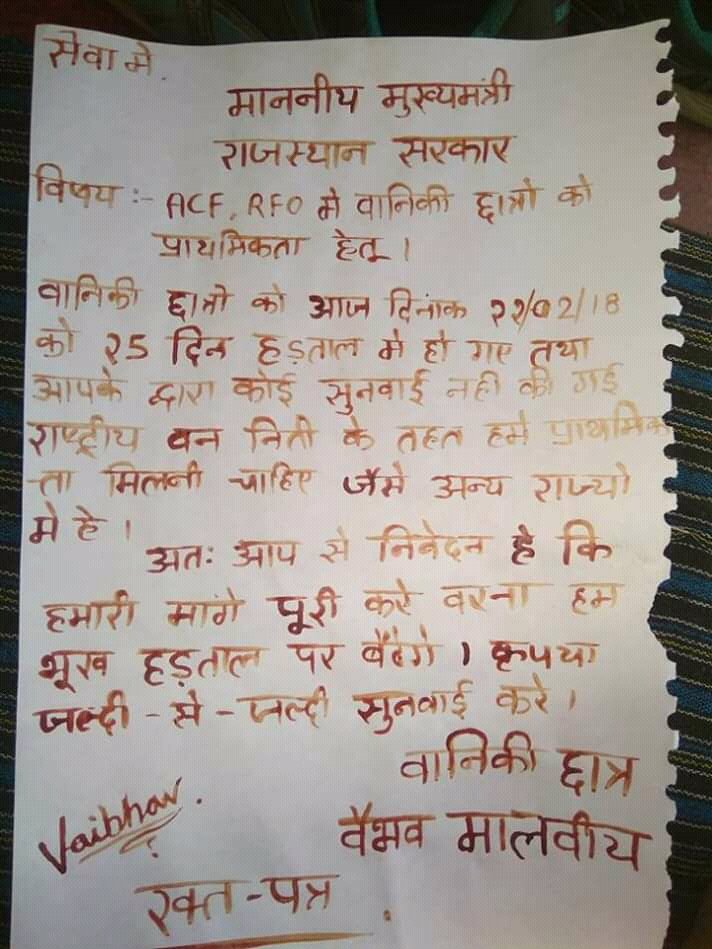 सेवा मे.
माननीय मुख्यमंत्री
राजस्थान सरकार
विषय :- ACF, RFO मे वानिकी छात्रो को
प्राथमिकता हेतू।
वानिकी छात्रो को आज दिनांक २२/02/18
को २5 दिन हड़ताल मे हो गए तथा
आपके द्वारा कोई सुनवाई नही की गई
राष्ट्रीय वन निती के तहत हमे प्राथमिक
-ता मिलनी चाहिए जैसे अन्य राज्यो
मे हे।
अतः आप से निवेदन हे कि
हमारी मांगे पूरी करे वरना हम
भूख हड़ताल पर बैठेगे। कृपया
जल्दी-से-जल्दी सुनवाई करे।
वानिकी छात्र
Vaibhav.
वैभव मालवीय
रक्त-पत्र.